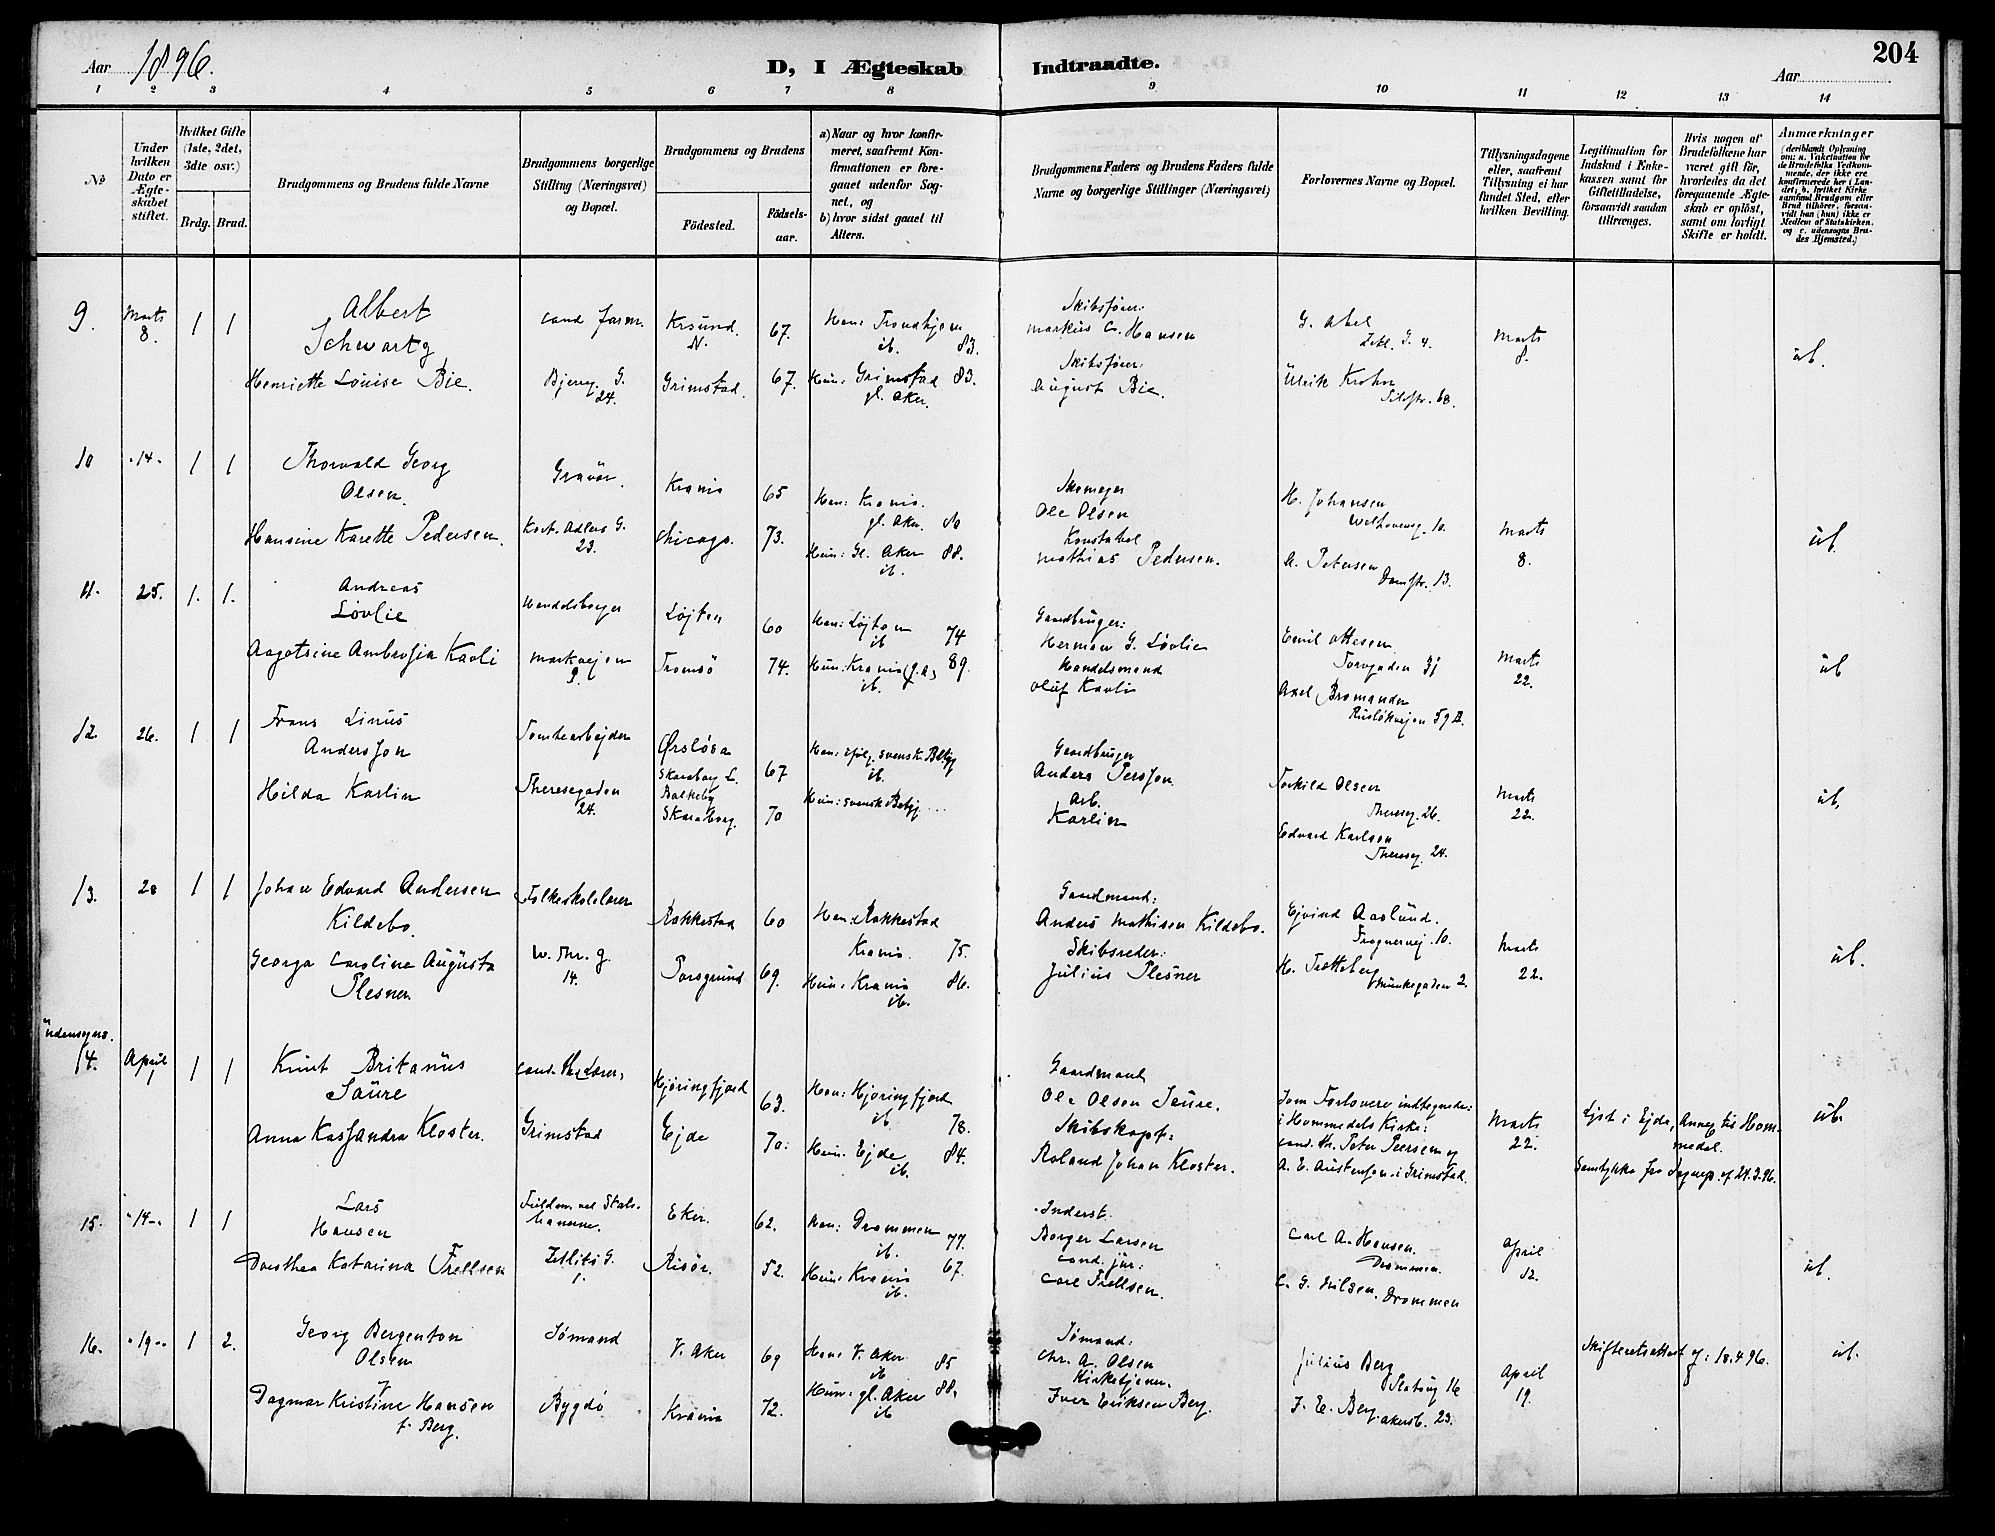 Aar 1896.
D, I Ægteskab Indtraadte.
204
Aar
1 2 3 4 5 6 7 8 9 10 11 12 13 14
No
Under hvilken Dato er Ægteskabet stiftet.
Hvilket Gifte (1ste, 2det, 3die osv.)
Brdg. Brud.
Brudgommens og Brudens fulde Navne
Brudgommens borgerlige Stilling (Næringsvei) og Bopæl.
Brudgommens og Brudens
Fødested.
Fødsels-aar.
a) Naar og hvor konfirmeret, saafremt Konfirmationen er foregaaet udenfor Sognet, og
b) hvor sidst gaaet til Alters.
Brudgommens Faders og Brudens Faders fulde Navne og borgerlige Stillinger (Næringsvei)
Forlovernes Navne og Bopæl.
Tillysningsdagene eller, saafremt Tillysning ei har fundet Sted, efter hvilken Bevilling.
Legitimation for Indskud i Enkekassen samt for Giftetilladelse, forsaavidt saadan tiltrænges.
Hvis nogen af Brudefolkene har været gift før, hvorledes da det foregaaende Ægteskab er opløst, samt om lovligt Skifte er holdt.
Anmærkninger (deriblandt Oplysning om: a. Vakcination for de Brudefolks Vedkommende, der ikke ere konfirmerede her i Landet; b. hvilket Kirkesamfund Brudgom eller Brud tilhører, forsaavidt han (hun) ikke er Medlem af Statskirken, og c. udensogns Brudes Hjemsted.)
9. Marts 8. 1 1 Albert Schwartz
cand farm. Krsund. N. 67. Han: Trondhjem ib. 83.
Skibsfører: Markus C. Hansen
G. Abel
Marts 8. ub.
Henriette Louise Bie. Bjerreg. G. 24. Grimstad. 67. Hun: Grimstad 83. gl. Aker.
Skibsfører: August Bie.
Ulrik Krohn 68.
10 "14" 1 1 Thorvald Georg Olsen
Gravør. Krania 65 Han: Krania. gl. Aker. 80
Skomager Ole Olsen
H. Johansen Welhavensg. 10.
Marts 8. ub.
Hansine Karette Pedersen. Kort. Adlers G. 23. Chicago. 73. Hun: Gl. Aker 88. ib.
Konstabel Mathias Pedersen.
A. Petersen Damstr. 13.
11. 25. 1. 1. Andreas Løvlie
Handelsborger Løjten 60 Han: Løjten ib 74
Gaardbruger: Herman G. Løvlie
Emil Ottesen Torvgaden 31
Marts 22. ub
Aagotine Ambrosia Kavli Markvejen 9. Tromsø 74. Hun: Krania (g.a) 89. ib.
Handelsmand Oluf Kavli
Axel Bromander Ruseløkvejen 59 B.
12. 26. 1 1 Frans Linus Andersson
Tomtearbejder Ørsløsa Skaraborg L. 67 Han: ifølg. svensk Betyg ib.
Gaardbruger Anders Persson.
Torkild Olsen Theresg. 26.
Marts 22. ub.
Hilda Karlin Theresegaden 24. Balkeby Skaraborg. 70 Hun: svensk Betyg ...
Arb. Karlin
Edvard Karlson Theresg. 24.
13. 28 1 1 Johan Edvard Andersen Kildebo.
Folkeskolelærer Rakkestad 60 Han: Rakkestad Krania. 75.
Gaardmand: Anders Mathisen Kildebo.
Ejvind Aaslund. Frognervej. 10.
Marts 22. ub.
Georga Caroline Augusta Plesner W. Thr. g. 14. Porsgrund 69. Hun: Krania 86. ib.
Skibsreder: Julius Plesner
H. Tratteberg Munkegaden 2.
Udensogns.
14. April 1 1 1 Knut Britanus Saure
cand. theol. Lærer, Hjøringfjord 63. Han: Hjøringfjord ib. 78.
Gaardmand Ole Olsen Saure.
Som Forlovere indtegnede: i Hommedals Kirke: cand. th. Peter Peersen og A. E. Austensen i Grimstad.
Marts 22.
Lyst i Ejde, Annex til Hommedal. Genstykke fra Sognep. af 24.3.96. ub.
Anna Kassandra Kloster. Grimstad Ejde 70. Hun: Ejde 84. ib.
Skibskapt: Roland Johan Kloster.
15. "14" 1 1 Lars Hansen
Fuldm. ved Statsbanerne. Eker. 62. Han: Drammen ib. 77.
Inderst. Borger Larsen
Carl A. Hansen. Drammen.
April 12. ub.
Dorothea Katarina Frellsen Zetlitz G. 1. Risør. 52. Hun: Krania 67. ib.
Cand. jur: Carl Frellsen.
C. G. Nilsen. Drammen
16. "19" 1 2. Georg Bergenton Olsen
Sømand V. Aker 69 Han: V. Aker 85 ib
Sømand: Chr. A. Olsen
Julius Berg 16
April 19.
Skifteretsattest af: 18.4.96. ub.
Dagmar Kristine Hansen f. Berg. Bygdø Krania 72. Hun: gl. Aker 88. ib
Kirketjener. Iver Eriksen Berg.
I. E. Berg. Akersb. 23.